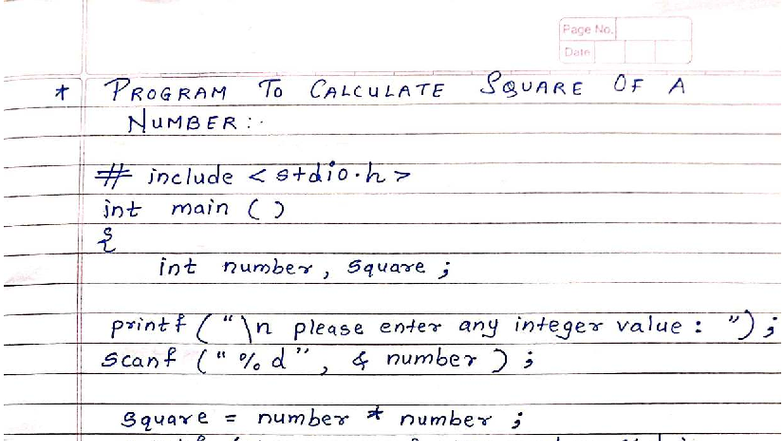 Page No.
Date
* PROGRAM TO CALCULATE SQUARE OF A
NUMBER :-
# include < stdio.h >
int main ( )
{
int number , square ;
printf ( " \n please enter any integer value : " ) ;
scanf ( " % d " , & number ) ;
square = number * number ;